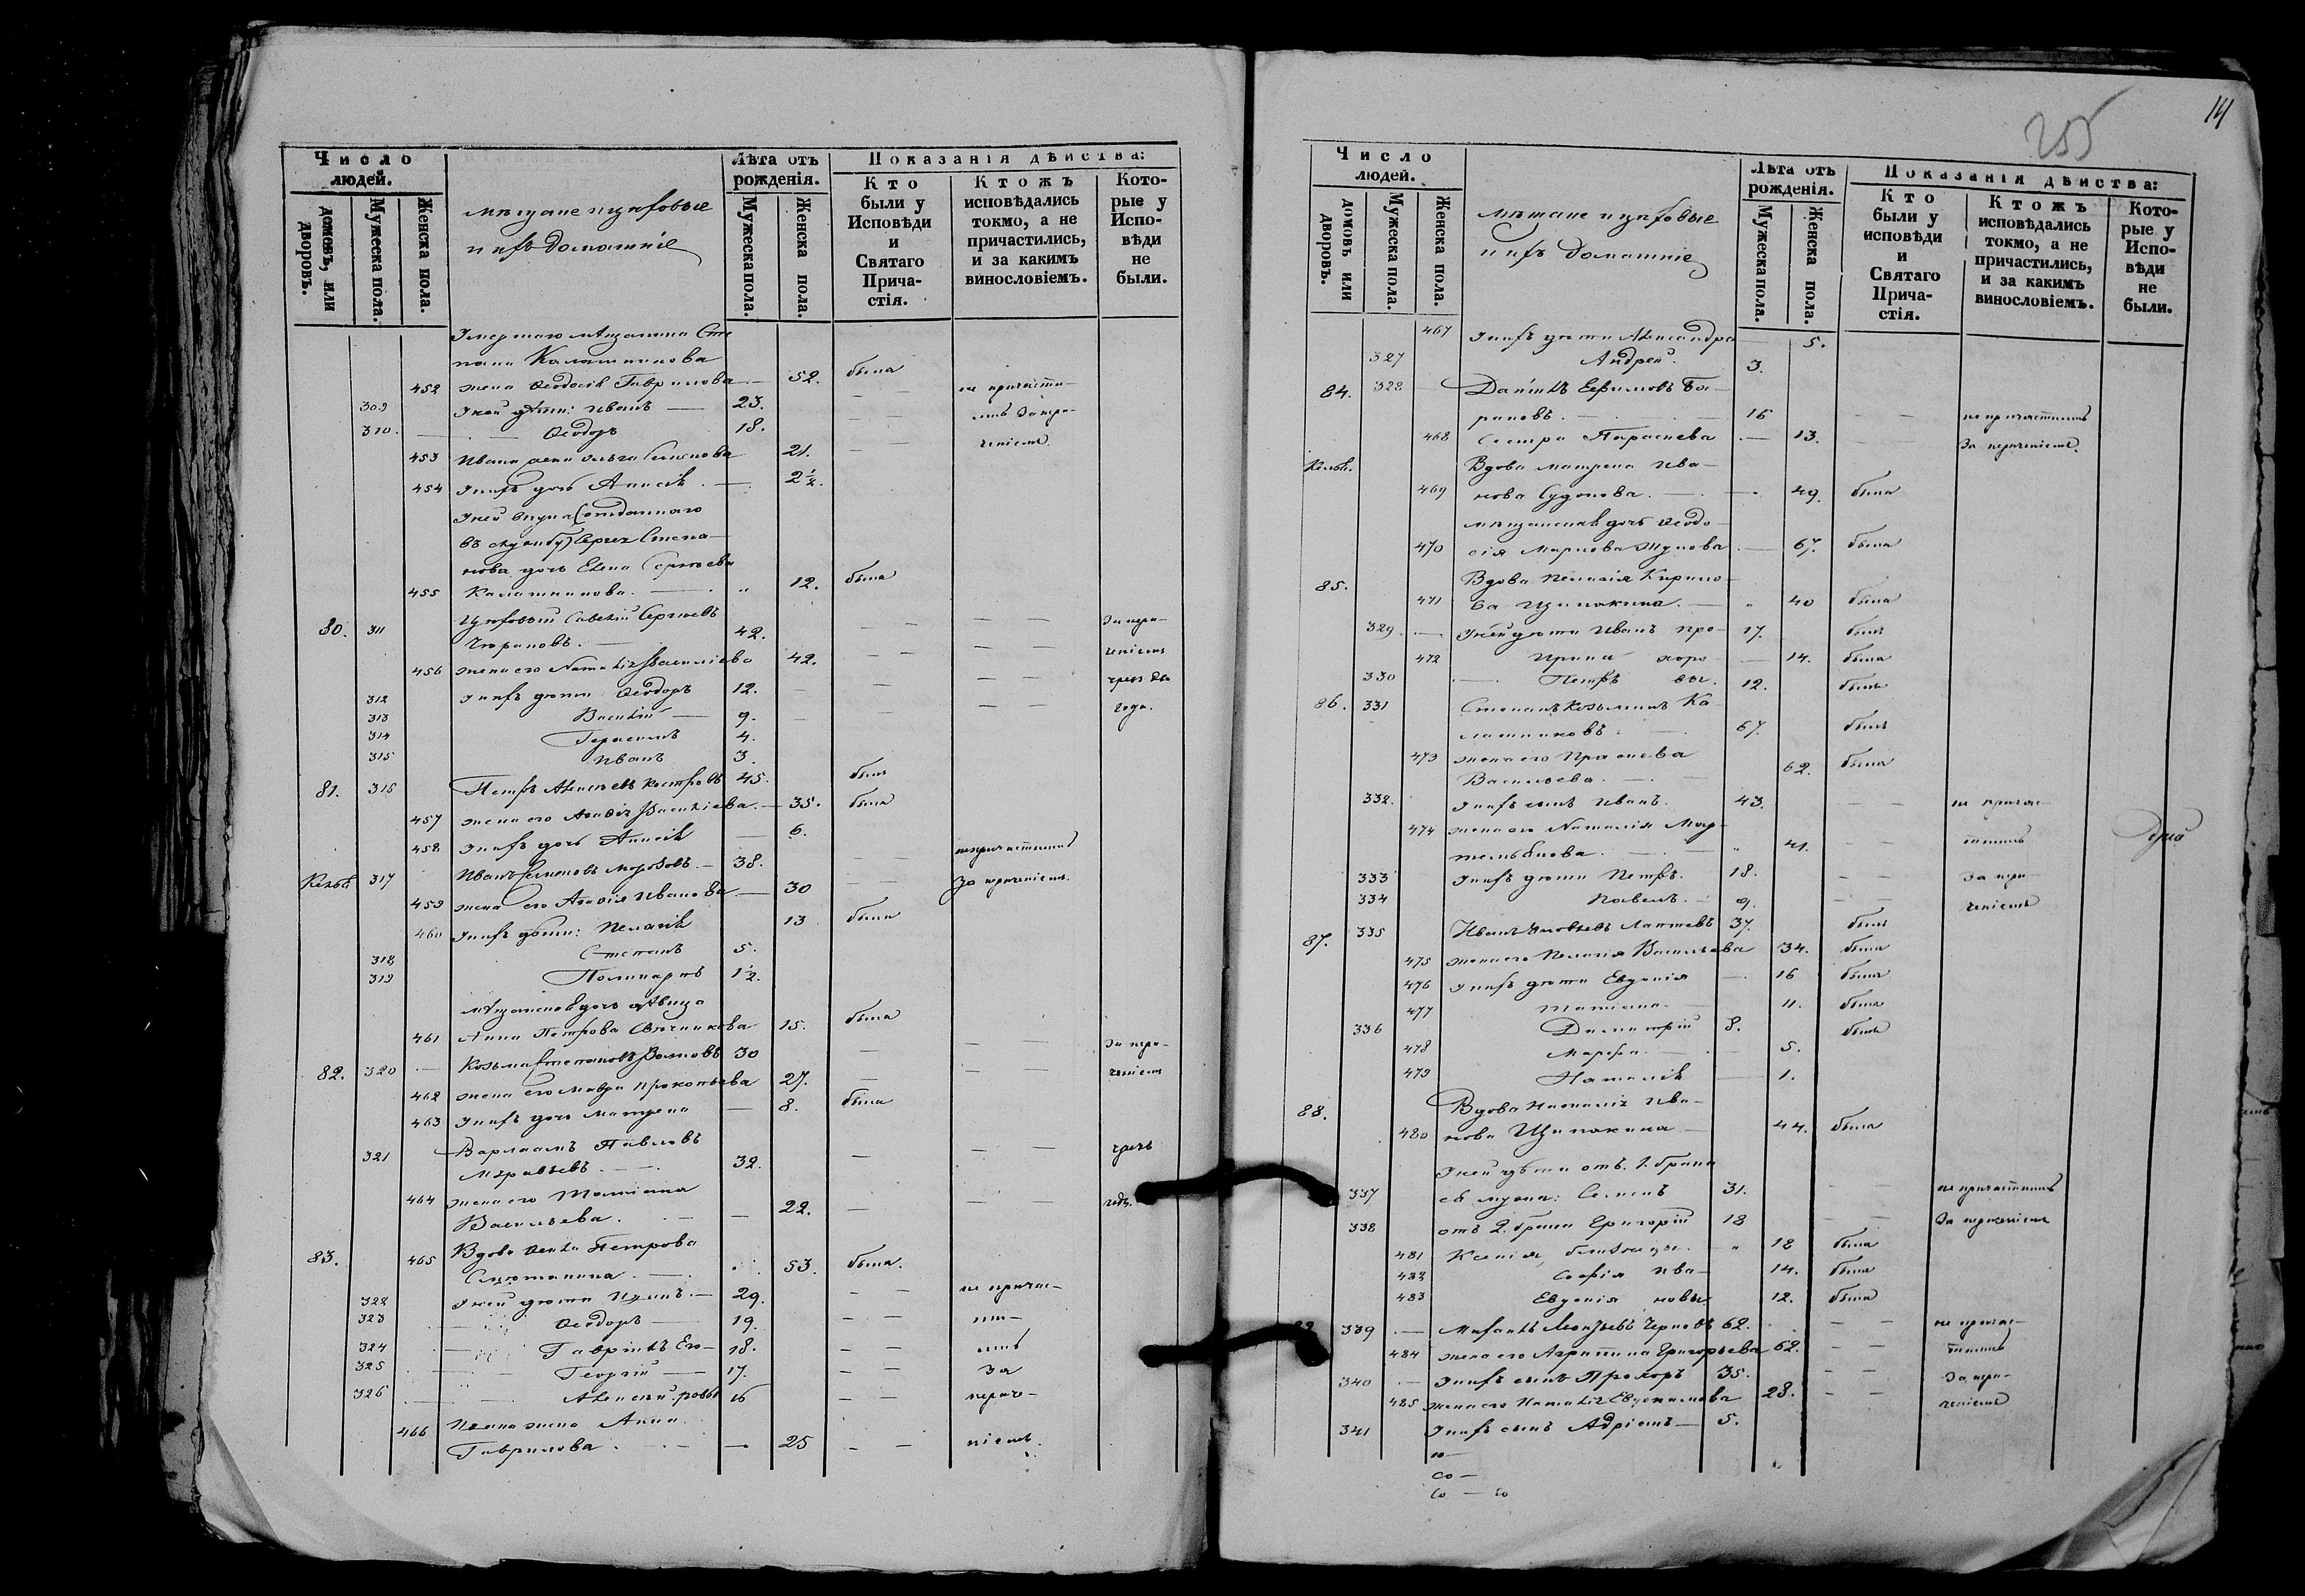 Число людей.
Лѣта отъ рожденія.
Показанія дѣйства:
домовъ, или дворовъ.
Мужеска пола.
Женска пола.
мѣщане цеховые
и ихъ домашніе
Мужеска пола.
Женска пола.
Кто были у Исповѣди и Святаго Причастія.
Ктожъ исповѣдались токмо, а не причастились, и за какимъ винословіемъ.
Которые у Исповѣди не были.
Умершаго мѣщанина Сте
пана Калашникова
452 жена Ѳеодосія Гаврилова — 52. была
309 Уней дѣти: Иванъ — 23. — не причасти-
310. Ѳеодоръ 18. — лись за
453 Ивана жена Ольга Семенова 21. —
454 Унихъ дочь Анисія — 2½.
Уней внука (отданнаго
въ службу) Сергея Степа-
нова дочь Елена Сергѣева
455 Калашникова. — „ 12. была
Цеховый Савелій Сергѣевъ
80. 311 42. — — —
456 жена его Наталія Василіева 42. — — —
312 Унихъ дѣти Ѳеодоръ 12. — — —
313 Василій — 9. — — — года.
314 Герасимъ 4.
315 Иванъ 3.
81. 316 Петръ Алексѣевъ Костровъ 45. былъ
457 жена его Агафія Василіева. — 35. была
458 Унихъ дочь Анисія — 6.
317 Иванъ Семеновъ Морозовъ. — 38. — — не причастились
459 жена его Агафія Иванова — 30 — —
460 Унихъ дѣти: Пелагія 13 была
318 Степанъ 5.
319 Поликарпъ 1½.
мѣщанская дочь дѣвица
461 Анна Петрова Свѣчникова 15. была
82. 320 — Козьма Степановъ Волковъ 30 — — —
462 жена его Мавра Прокопьева 27. — — —
463 Унихъ дочь Матрена — 8. была
321 Варлаамъ Павловъ
Муравьевъ. — 32. — — —
464 жена его Татіана
Васильева. — — 22. — — —
83. 465 Вдова Ѳекла Петрова
53. была.
не причас-
322 Уней дѣти — 29. — —
323 Ѳеодоръ — 19. — ти-
324 Гавріилъ Его- 18. — — лись
325 Георгій — 17. — — за
326 Алексѣй ровы 16 — —
466 жена Анна
Гаврилова. — — 25 — —
255
Число людей.
Лѣта отъ рожденія.
Показанія дѣйства:
домовъ или дворовъ.
Мужеска пола.
Женска пола.
мѣщане и цеховые
и ихъ домашніе
Мужеска пола.
Женска пола.
Кто были у исповѣди и Святаго Причастія.
Ктожъ исповѣдались токмо, а не причастились, и за какимъ винословіемъ.
Которые у Исповѣди не были.
467 Унихъ дѣти Александра — 5.
327 Андрей. 3.
84. 328 — Даніилъ Ефимовъ Ба-
рановъ. — 16 — — не причастились
468 Сестра Параскева — 13. —
Вдова Матрена Ива-
469 нова — 49. была
мѣщанская дочь Ѳеодо-
470 сія Маркова Жукова — 67. была
85. Вдова Пелагія Кирило-
471 ва Щипакина. — „ 40 была
329. — Уней дѣти Иванъ Про- 17. былъ
472 Ирина хоро — 14. была
330 — Петръ вы. 12. былъ
86. 331 Степанъ Козьминъ Ка-
лашниковъ. 67. былъ
473 жена его Праскева
Васильева. — 62. была
332. Унихъ сынъ Иванъ. 43. — — не причас-
474 жена его Наталія Мар-
„ 41. — — тились
333 Унихъ дѣти Петръ. 18. — —
334 Павелъ. 9. — —
87. 335 Иванъ Яковлевъ Лаптевъ 37. былъ
475 жена его Пелагія Васильева 34. была
476 Унихъ дѣти Евдокія — 16 была
477 Татіана. — 11. была
336 Димитрій 8. былъ
478 Марѳа. — 5.
479 Наталія — 1.
88. Вдова Наталія Ива-
480 нова Щипакина — 44. была
Уней дѣти отъ 1. брака
337 съ мужа: Семенъ 31. — — не причастились
338 отъ 2. брака Григорій 18 — —
481 Ксенія близнецы. „ 18 была
482 Софія Ива- 14. была
483 Евдокія новы 12. была
339 — Михаилъ Леонтьевъ Черновъ 62. — — не причас-
484 жена его Агрипина Григорьева 62. — — тились
340 — Унихъ сынъ Прохоръ 35. —
485 жена его Наталія Евдокимова 28. — —
341 Унихъ сынъ Адріанъ — 5.